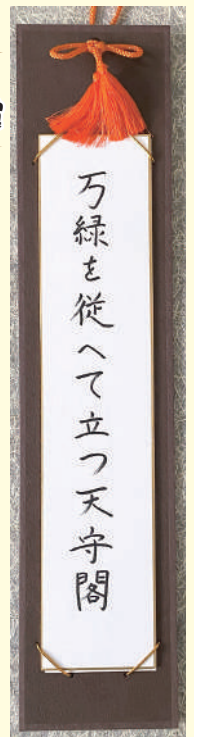 万緑を従へて立つ天守閣